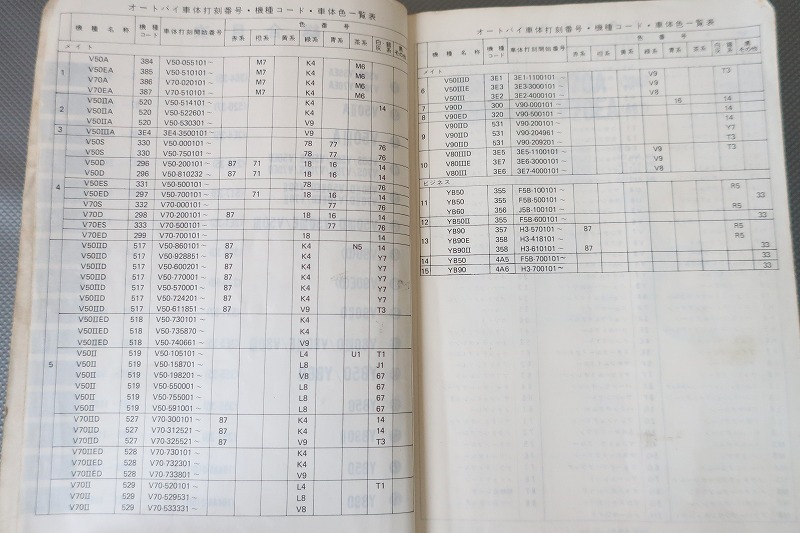 オートバイ車体打刻番号・機種コード・車体色一覧表
機種名称 機種コード 車体打刻開始番号 色番号
赤系 橙系 黄系 緑系 青系 茶系 白銀灰系 黒その他
メイト
1 V50A 384 V50-055101～ M7 K4 M6
V50EA 385 V50-510101～ M7 K4 M6
V70A 386 V70-020101～ M7 K4 M6
V70EA 387 V70-510101～ M7 K4 M6
2 V50IIA 520 V50-514101～ K4 14
V50IIA 520 V50-522601～ K4
V50IIA 520 V50-530301～ V9
3 V50IIIA 3E4 3E4-3500101～ V9
4 V50S 330 V50-000101～ 78 77
V50S 330 V50-750101～ 78 77 76
V50D 296 V50-200101～ 87 71 18 16 14
V50D 296 V50-810232～ 87 71 18 16 14
V50ES 331 V50-500101～ 78 76
V50ED 297 V50-700101～ 71 18 16 14
V70S 332 V70-000101～ 77 76
V70D 298 V70-200101～ 87 18 16 14
V70ES 333 V70-500101～ 77 76
V70ED 299 V70-700101～ 18 14
5 V50IID 517 V50-860101～ 87 K4 N5 14
V50IID 517 V50-928851～ 87 K4 Y7
V50IID 517 V50-600201～ 87 K4 Y7
V50IID 517 V50-770001～ 87 K4 Y7
V50IID 517 V50-570001～ 87 K4 Y7
V50IID 517 V50-724201～ 87 K4 Y7
V50IID 517 V50-611851～ 87 V9 T3
V50IIED 518 V50-730101～ K4
V50IIED 518 V50-735870～ K4
V50IIED 518 V50-740661～ V9
V50II 519 V50-105101～ L4 U1 T1
V50II 519 V50-158701～ L8 J1
V50II 519 V50-198201～ V8 67
V50II 519 V50-550001～ L8 67
V50II 519 V50-755001～ L8 67
V50II 519 V50-591001～ L8 67
V70IID 527 V70-300101～ 87 K4 14
V70IID 527 V70-312521～ 87 K4 14
V70IID 527 V70-325521～ 87 V9 T3
V70IIED 528 V70-730101～ K4
V70IIED 528 V70-732301～ K4
V70IIED 528 V70-733801～ V9
V70II 529 V70-520101～ L4 T1
V70II 529 V70-529531～ L8
V70II 529 V70-533331～ V8
オートバイ車体打刻番号・機種コード・車体色一覧表
機種名称 機種コード 車体打刻開始番号 色番号
赤系 橙系 黄系 緑系 青系 茶系 白銀灰系 黒その他
メイト
6 V50IIID 3E1 3E1-1100101～ V9 T3
V50IIIE 3E3 3E3-3000101～ V9
V50III 3E2 3E2-4000101～ V8
7 V90D 300 V90-000101～ 16 14
8 V90ED 320 V90-500101～ 14
9 V90IID 531 V90-200101～ 14
V90IID 531 V90-204961～ Y7
V90IID 531 V90-209201～ T3
10 V80IIID 3E5 3E5-1100101～ V9 T3
V80IIIE 3E7 3E6-3000101～ V9
V80III 3E6 3E7-4000101～ V8
ビジネス
11 YB50 355 F5B-100101～ R5
YB50 355 F5B-500101～ 33
YB60 356 J5B-100101～ R5
12 YB50II 355 F5B-600101～ 33
13 YB90 357 H3-570101～ 87 R5
YB90E 358 H3-418101～ R5
YB90II 358 H3-610101～ 87 33
14 YB50 4A5 F5B-700101～ 33
15 YB90 4A6 H3-700101～ 33